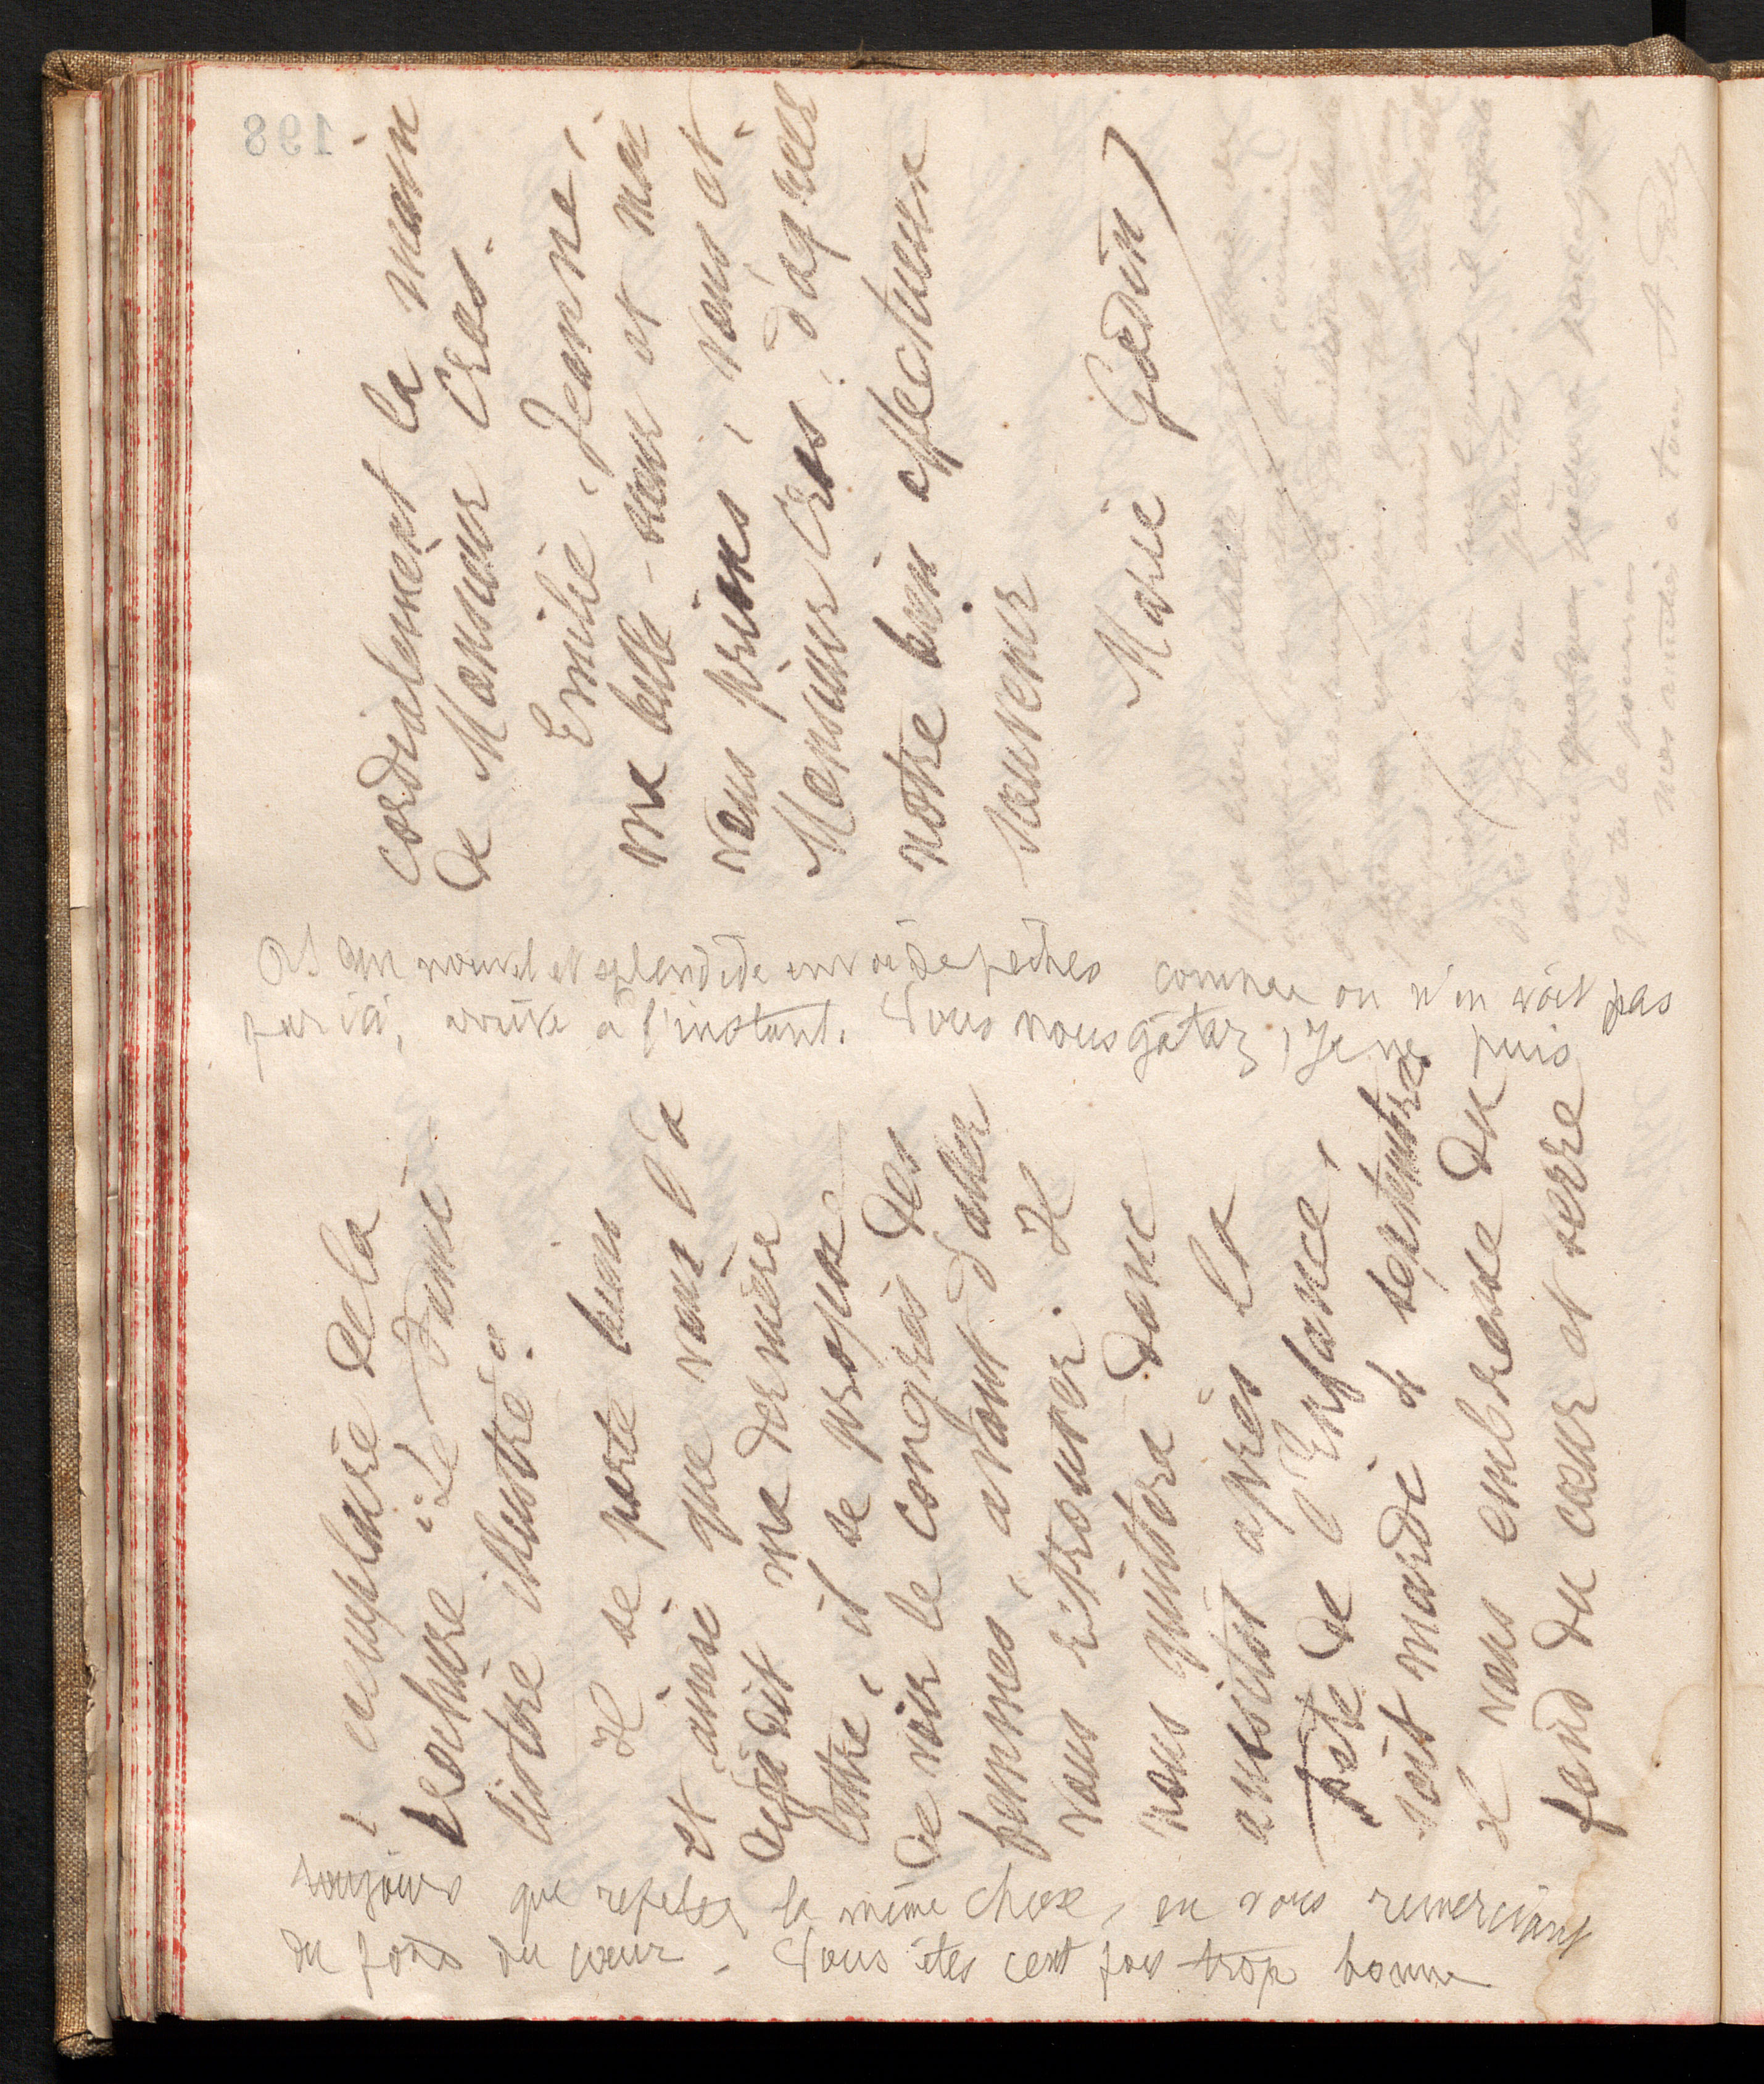 1 exemplaire de la
brochure "Le Familistère illustré"
Il se porte bien
et ainsi que vous l'a
déjà dit ma dernière
lettre, il se propose
de voir le congrès des
femmes, avant d'aller
vous retrouver. Il
nous quittera donc
aussitôt après la
fête de l'Enfance,
soit mardi 4 septembre
Il vous embrasse du
fond du cœur et serre
cordialement la main
de Monsieur Cros.
Emilie, Jeanne,
ma belle-sœur et moi
vous prions, vous et
Monsieur Cros, d'agréer
notre bien affectueux
souvenir
Marie Godin
Et un nouvel et splendide envoi de pêches comme on n'en voit pas
par ici, arrive à l'instant. Vous nous gâtez, Je ne puis
toujours que répéter la même chose, en vous remerciant
du fond du cœur. Vous êtes cent fois trop bonne
198